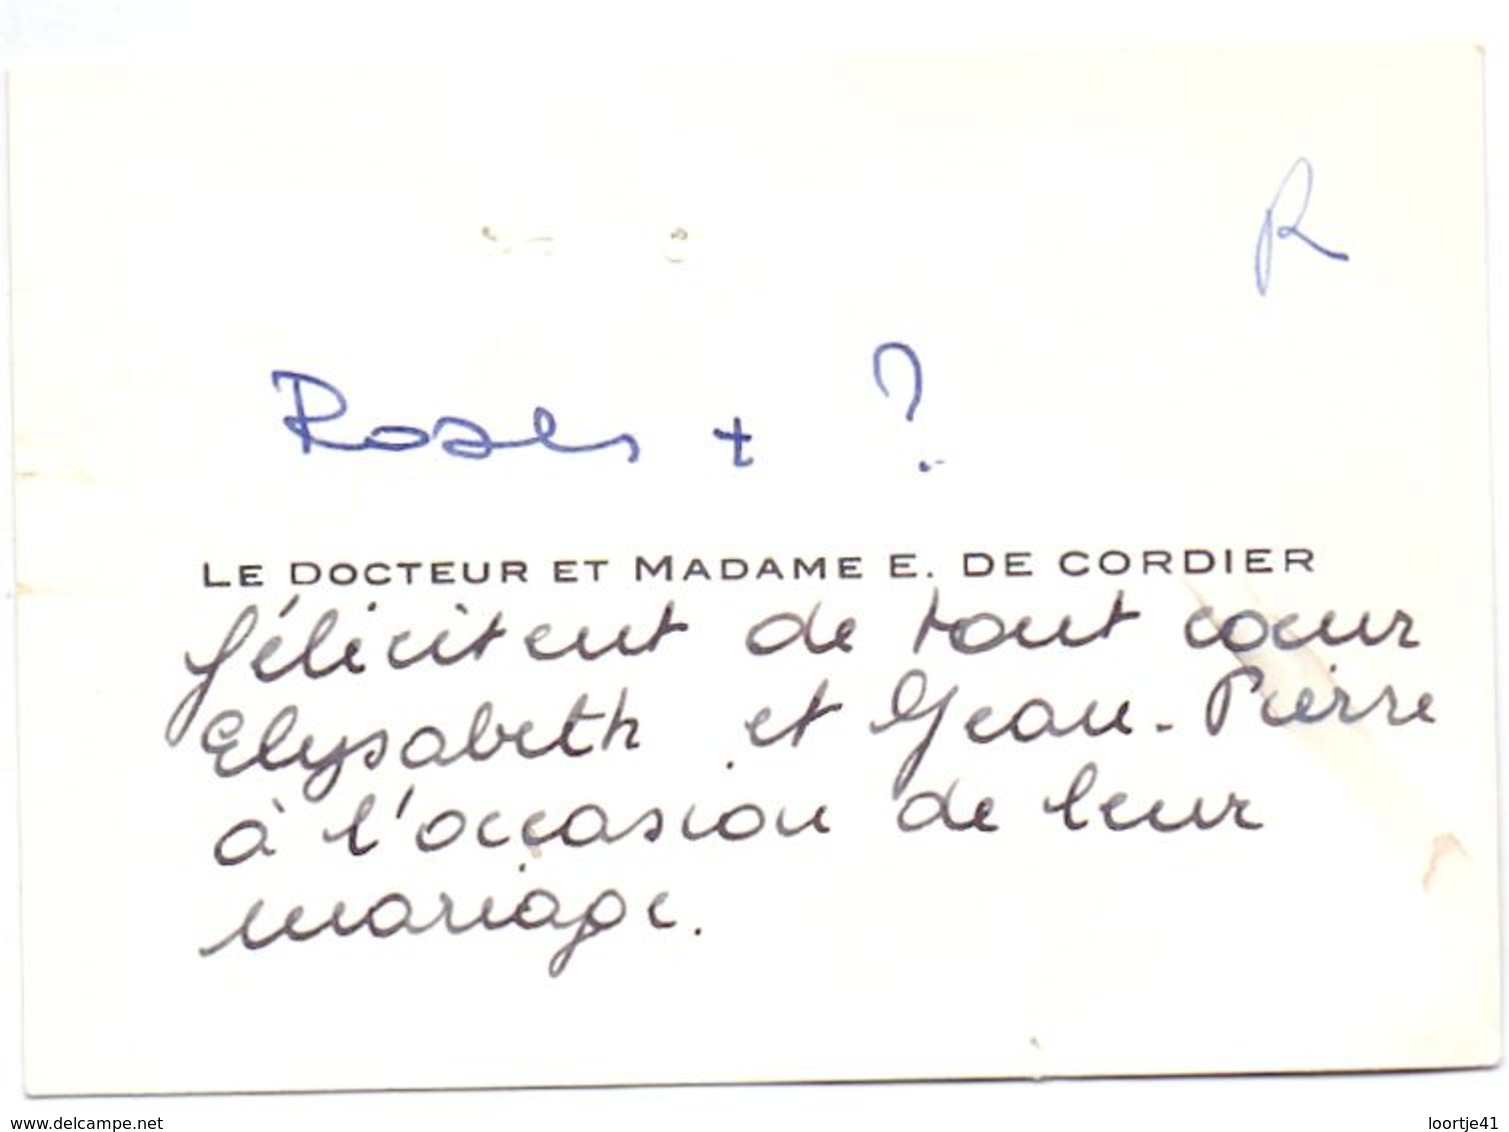 R
Roses + ?
LE DOCTEUR ET MADAME E. DE CORDIER
félicitent de tout cœur
Elysabeth et Jean-Pierre
à l'occasion de leur
mariage.
www.delcampe.net
loortje41